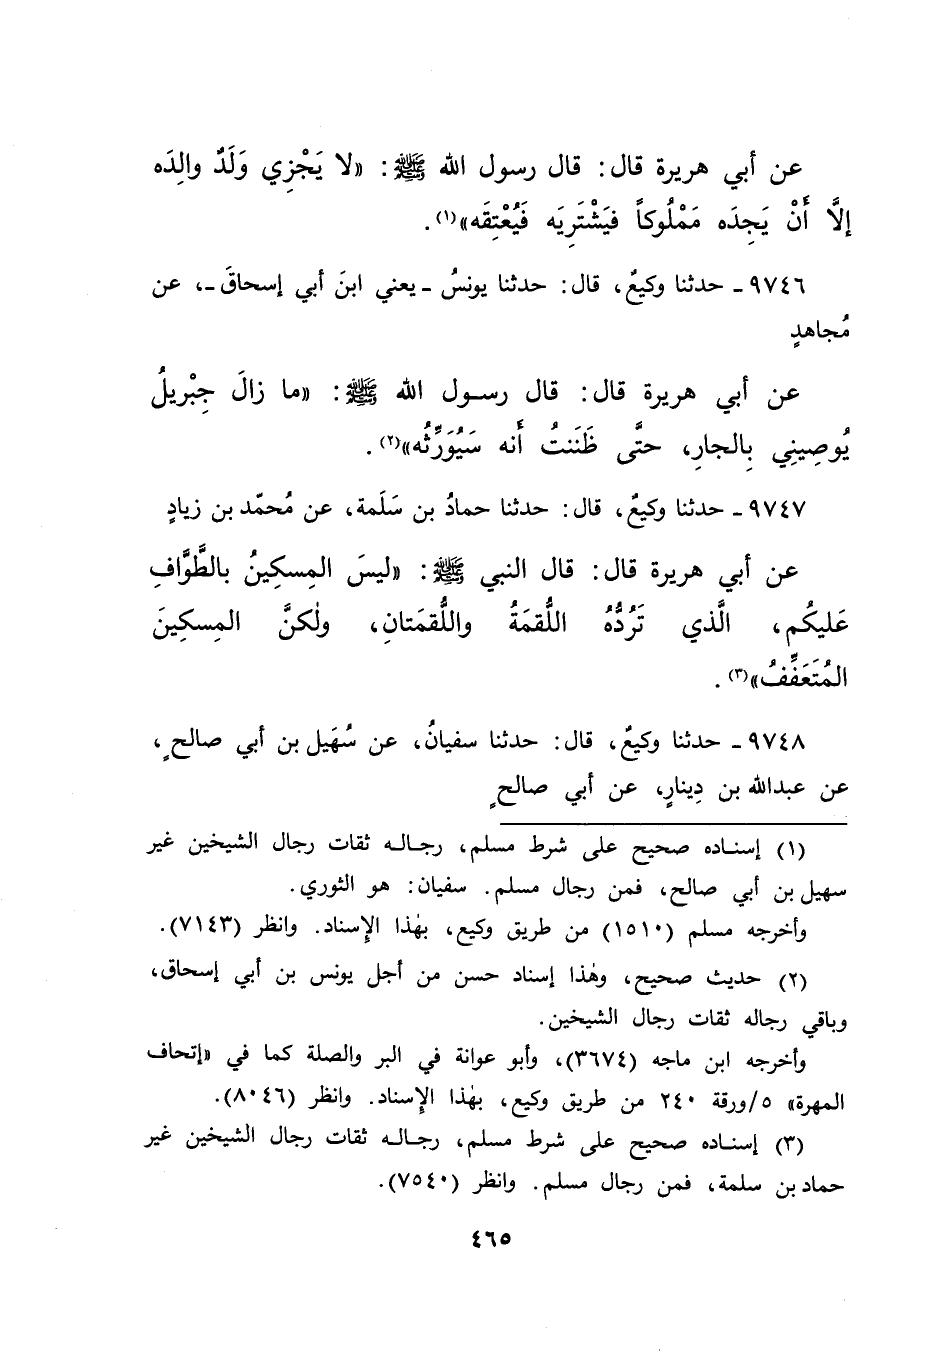 عن أبي هريرة قال: قال رسول الله ﷺ: «لا يَجْزِي وَلَدٌ والِدَه
إلَّا أَنْ يَجِدَه مَمْلُوكاً فيَشْتَرِيَه فَيُعْتِقَه»(١).
٩٧٤٦ - حدثنا وكيعٌ، قال: حدثنا يونسُ - يعني ابنَ أبي إسحاقَ -، عن
مُجاهدٍ
عن أبي هريرة قال: قال رسول الله ﷺ: «ما زالَ جِبْريلُ
يُوصِينِي بِالجارِ، حتَّى ظَنَنتُ أَنه سَيُوَرِّثُه»(٢).
٩٧٤٧ - حدثنا وكيعٌ، قال: حدثنا حمادُ بن سَلَمة، عن مُحمّد بن زيادٍ
عن أبي هريرة قال: قال النبي ﷺ: «ليسَ المِسكِينُ بالطَّوَّافِ
عَليكُم، الَّذي تَرُدُّهُ اللُّقمَةُ واللُّقمَتانِ، ولٰكنَّ المِسكِينَ
المُتَعَفِّفُ»(٣).
٩٧٤٨ - حدثنا وكيعٌ، قال: حدثنا سفيانُ، عن سُهَيل بن أبي صالحٍ،
عن عبدالله بن دِينارٍ، عن أبي صالحٍ
(١) إسناده صحيح على شرط مسلم، رجاله ثقات رجال الشيخين غير
سهيل بن أبي صالح، فمن رجال مسلم. سفيان: هو الثوري.
وأخرجه مسلم (١٥١٠) من طريق وكيع، بهٰذا الإسناد. وانظر (٧١٤٣).
(٢) حديث صحيح، وهٰذا إسناد حسن من أجل يونس بن أبي إسحاق،
وباقي رجاله ثقات رجال الشيخين.
وأخرجه ابن ماجه (٣٦٧٤)، وأبو عوانة في البر والصلة كما في «إتحاف
المهرة» ٥/ورقة ٢٤٠ من طريق وكيع، بهٰذا الإسناد. وانظر (٨٠٤٦).
(٣) إسناده صحيح على شرط مسلم، رجاله ثقات رجال الشيخين غير
حماد بن سلمة، فمن رجال مسلم. وانظر (٧٥٤٠).
٤٦٥